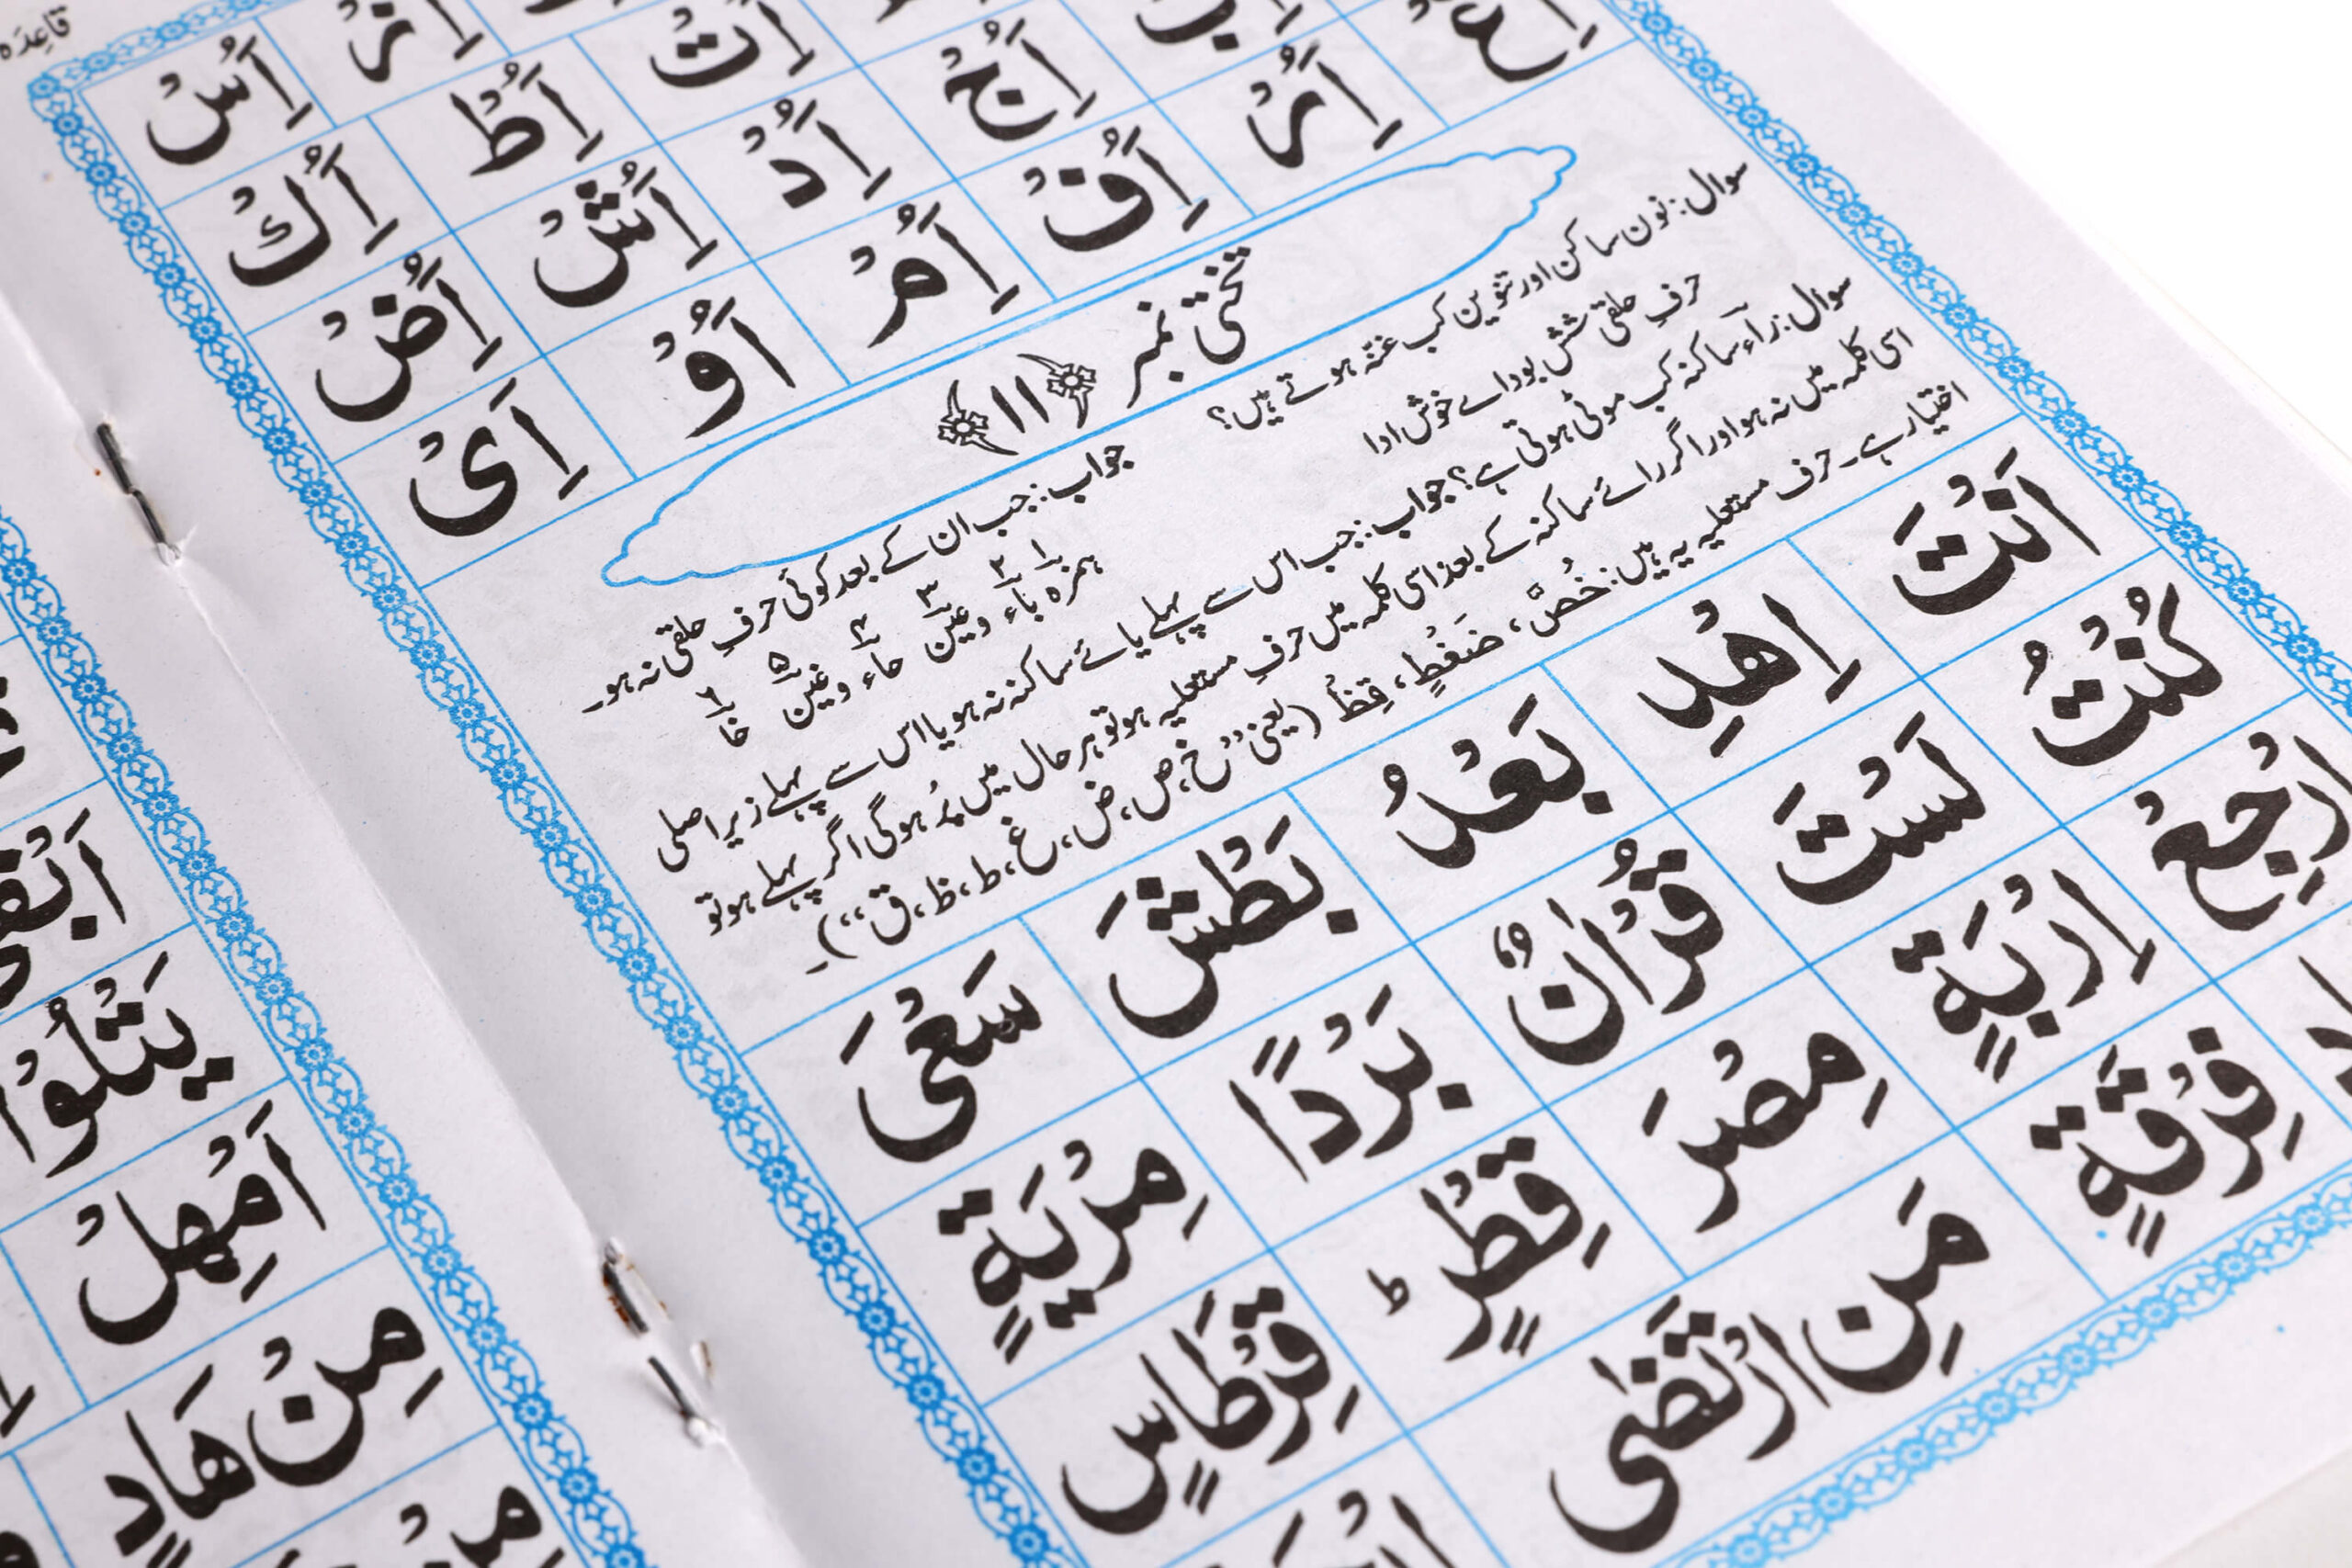 قاعدہ
اِاَاُسْ
اِاَاُتْ اِاَاُطْ اِاَاُكْ
اِاَاُدْ اِاَاُشْ اِاَاُضْ
اِاَاُرْ اِاَاُفْ اَاُوْ اِاَىْ
تختی نمبر ﴿۱۱﴾
سوال: نون ساکن اور تنوین کب غنّہ ہوتے ہیں؟ جواب: جب ان کے بعد کوئی حرفِ حلقی نہ ہو۔
حرفِ حلقی شش بود اے خوش ادا ہمزہ ہاء و عین حاء و غین خا
۱ ۲ ۳ ۴ ۵ ۶
سوال: راء ساکنہ کب موٹی ہوتی ہے؟ جواب: جب اس سے پہلے یائے ساکنہ نہ ہو یا اس سے پہلے زیر اصلی
اسی کلمہ میں نہ ہو اور اگر رائے ساکنہ کے بعد اسی کلمہ میں حرفِ مستعلیہ ہو تو ہر حال میں پُر ہوگی اگر پہلے ہو تو
اختیار ہے۔ حرف مستعلیہ یہ ہیں: خُصَّ، ضَغْطٍ، قِظْ (یعنی ’’خ، ص، ض، غ، ط، ظ، ق‘‘)۔
اَنْتَ اِهْدِ بَعْدُ بَطْشَ سَعْىَ
كُنْتُ لَسْتَ قُرْاٰنٌ بَرْدًا مِرْيَةٍ
ارْجِعْ اِرْبَةٍ مِصْرَ قِطْرٍ ط قِرْطَاسٍ
فِرْقَةٍ مَنِ ارْتَضٰى
يَتْلُوْا
اَمْهِلْ
مِنْ هَادٍ